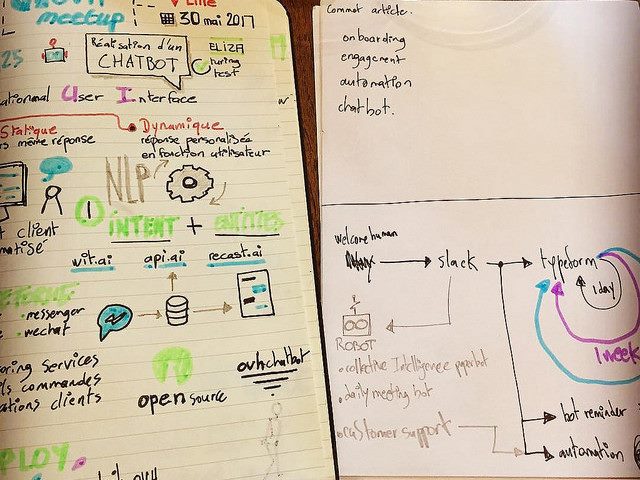 Lille
meetup
30 mai 2017
25
Réalisation d'un
CHATBOT
ELIZA
turing
test
ationnal User Interface
Statique
Dynamique
s même réponse
réponse personalisée
en fonction utilisateur
NLP
① INTENT + ENTITIES
client
matisé
wit.ai api.ai recast.ai
. messenger
. wechat
oring services
ls commandes
ations clients
open source
ovhchatbot
PLOY
Commot article.
onboarding
engagement
automation
chatbot.
welcome human
slack
typeform
1 day
1 week
ROBOT
. collective Intelligence paperbot
. daily meeting bot
. customer support
bot reminder
automation